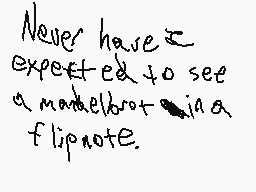 Never have I
expected to see
a mandelbrot in a
flipnote.